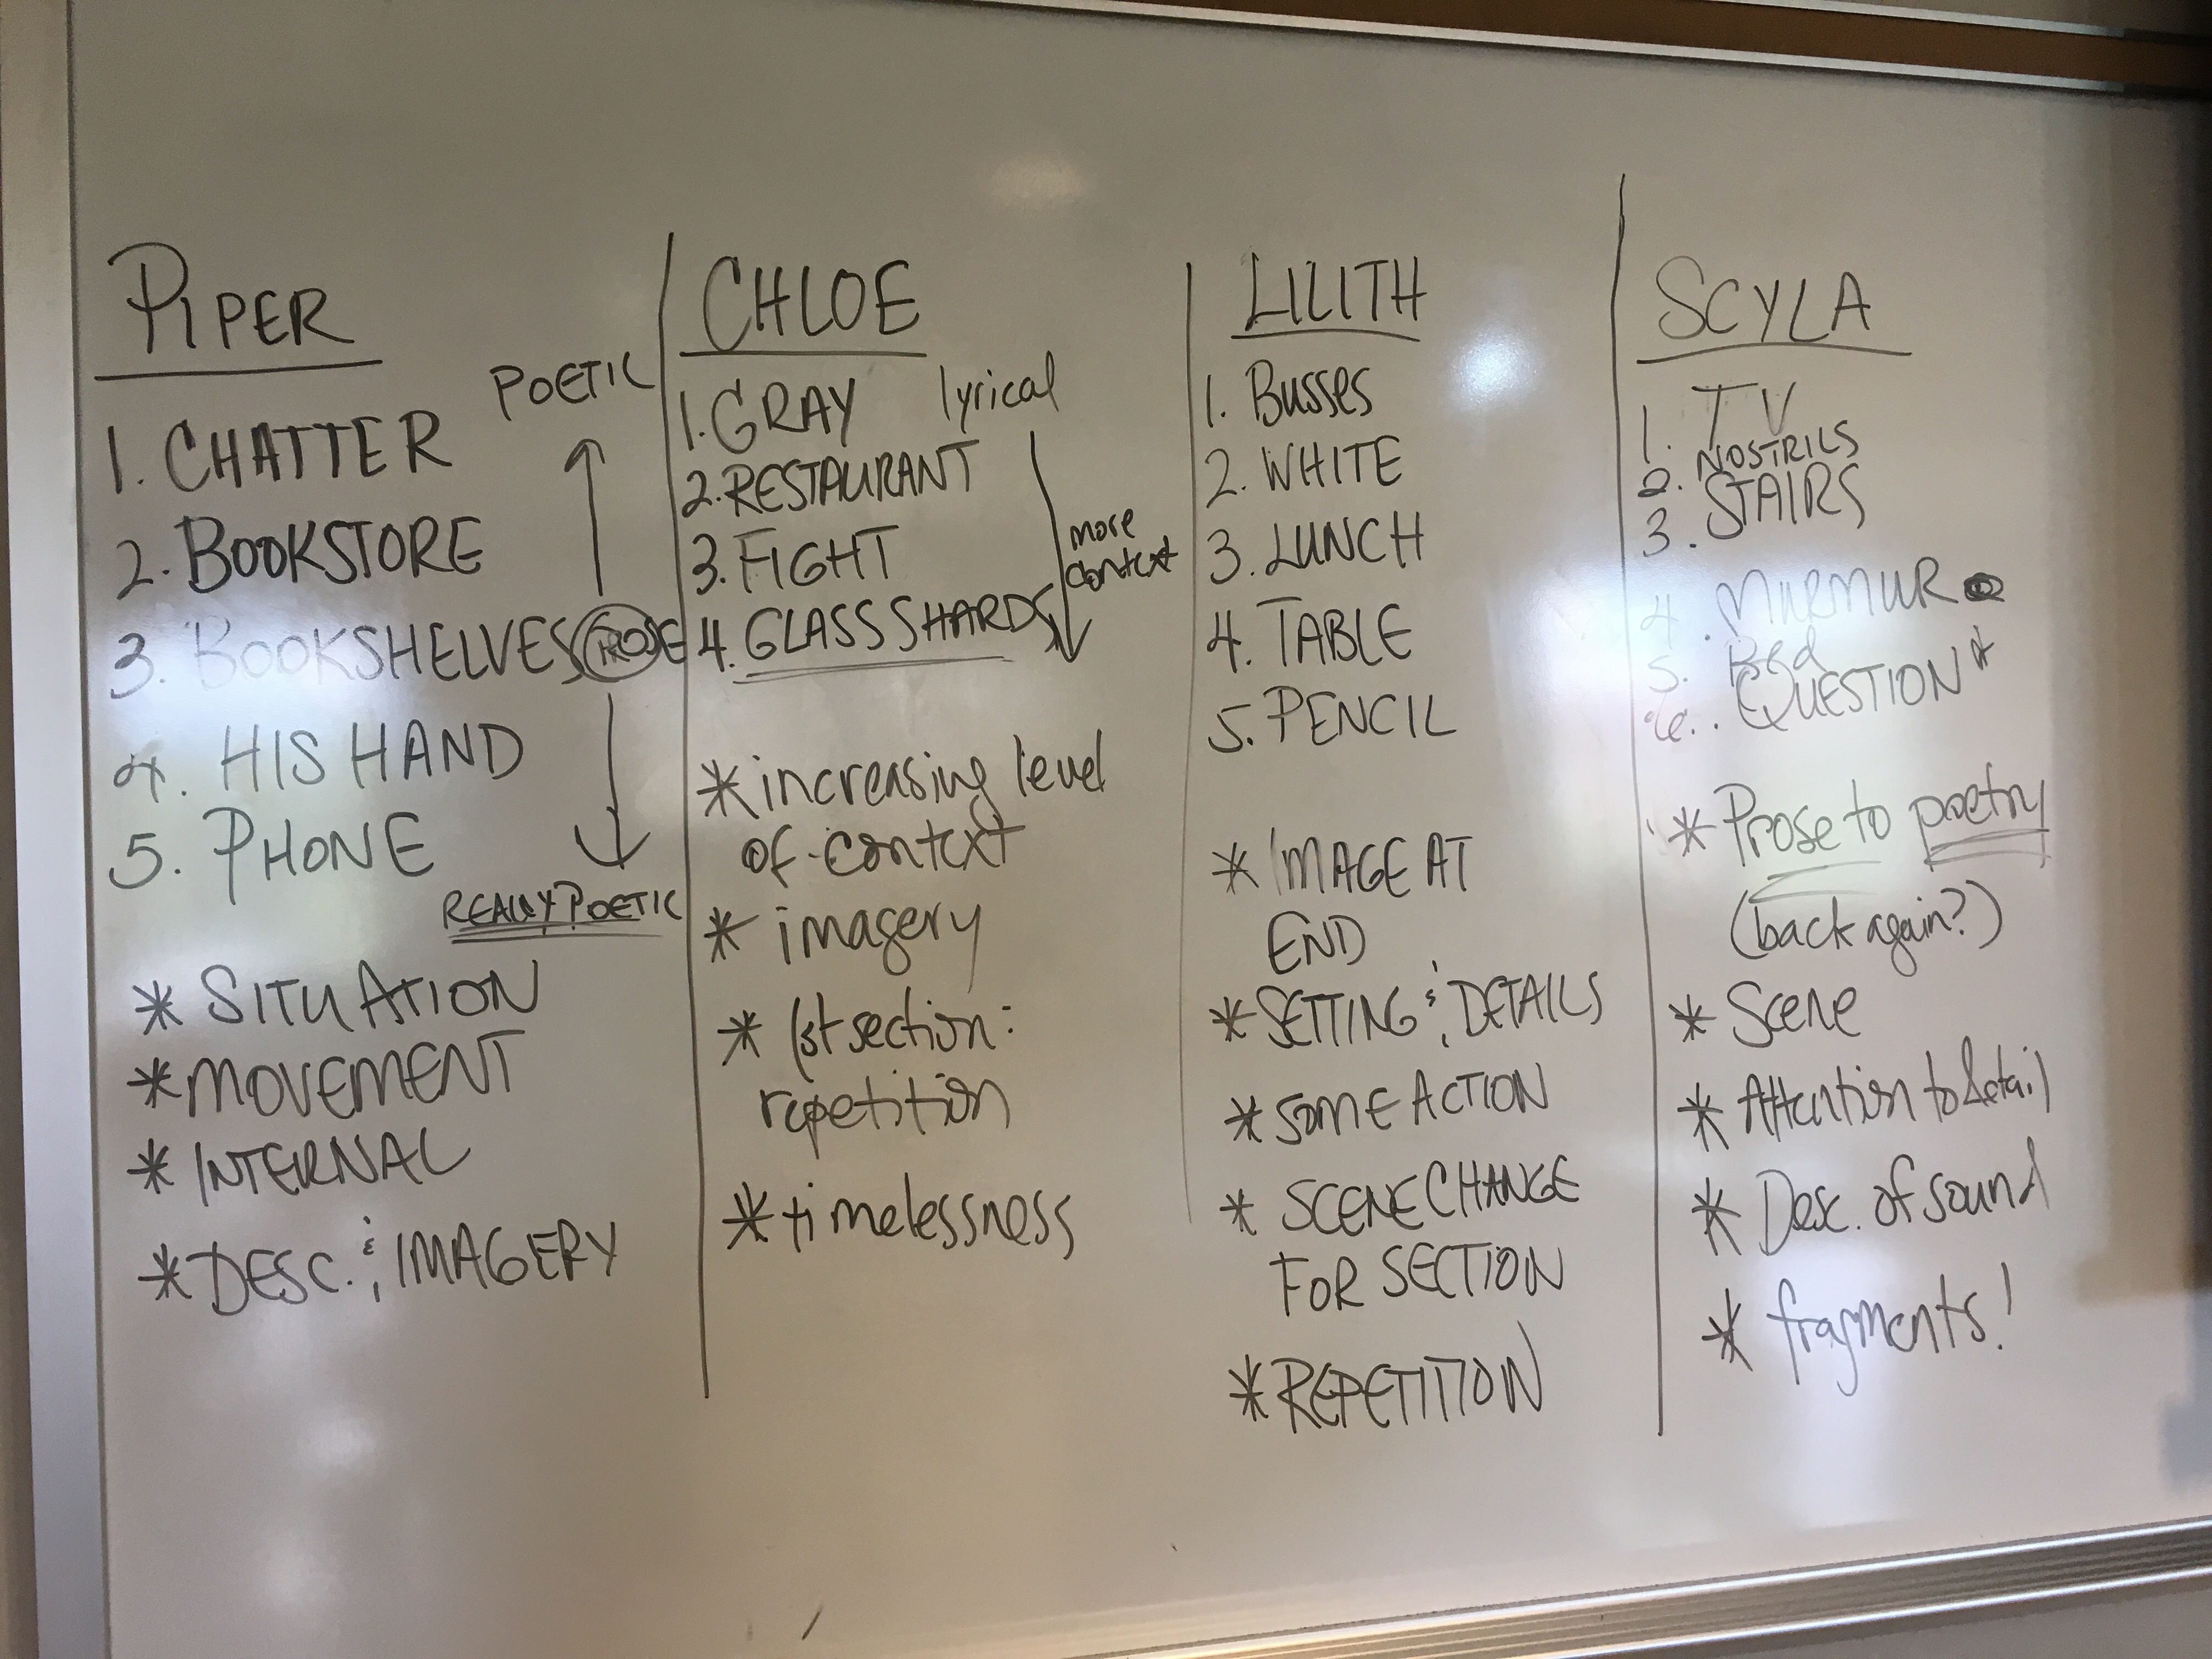 PIPER
POETIC
1. CHATTER
2. BOOKSTORE
3. BOOKSHELVES PROSE
4. HIS HAND
5. PHONE
REALLY POETIC
* SITUATION
* MOVEMENT
* INTERNAL
* DESC. & IMAGERY
CHLOE
1. GRAY lyrical
2. RESTAURANT
3. FIGHT
more
context
4. GLASS SHARDS
* increasing level
of context
* imagery
* 1st section:
repetition
* timelessness
LILITH
1. BUSSES
2. WHITE
3. LUNCH
4. TABLE
5. PENCIL
* IMAGE AT
END
* SETTING & DETAILS
* SOME ACTION
* SCENE CHANGE
FOR SECTION
* REPETITION
SCYLA
1. TV
2. NOSTRILS
3. STAIRS
4. MURMUR
5. Bed
6. QUESTION *
* Prose to poetry
(back again?)
* Scene
* Attention to detail
* Desc. of sound
* fragments!